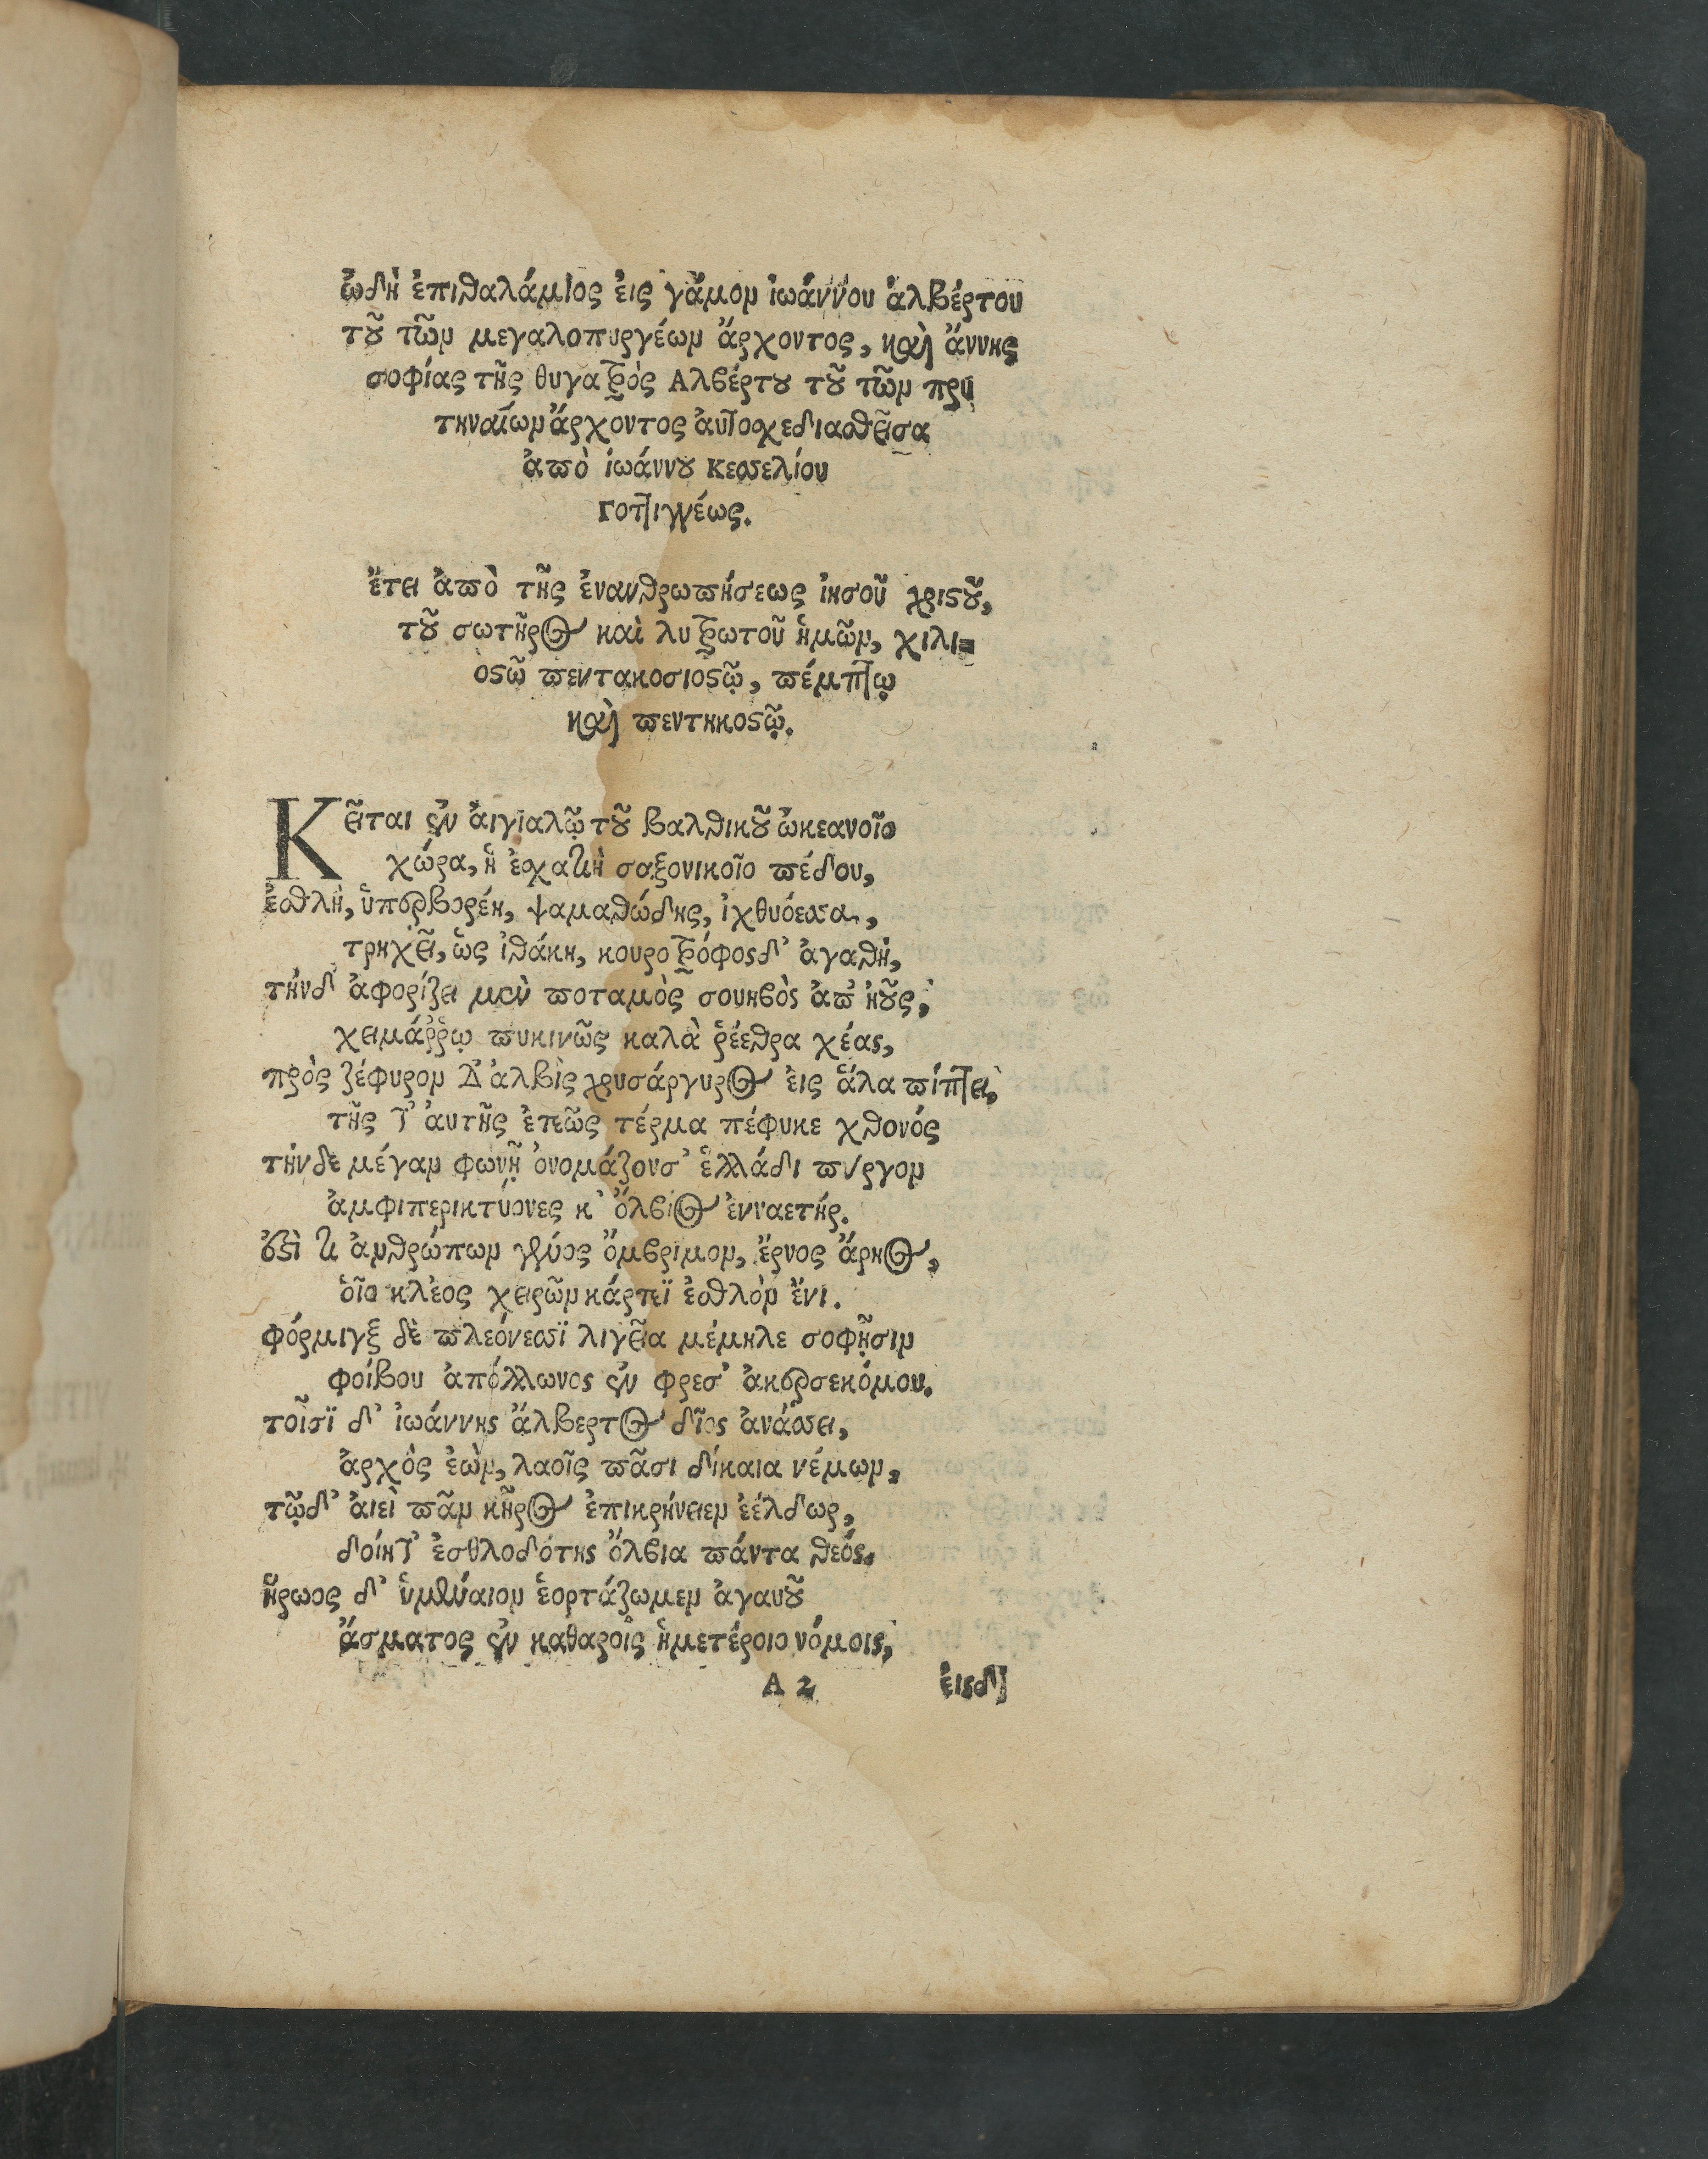 ὠδὴ ἐπιθαλάμιος ἐις γάμον ἰωάννου ἀλβέρτου
τοῦ τῶν μεγαλοπυργέων ἄρχοντος, καὶ ἄννης
σοφίας τῆς θυγατρὸς Αλβέρτου τοῦ τῶν πρυ
τηναίων ἄρχοντος ἀυτοσχεδιασθεῖσα
ἀπὸ ἰωάννου Κεσσελίου
Γοττιγγέως.
ἔτει ἀπὸ τῆς ἐνανθρωπήσεως ἰησοῦ χριστοῦ,
τοῦ σωτῆρος καὶ λυτρωτοῦ ἡμῶν, χιλι=
οστῶ πεντακοσιοστῷ, πέμπτῳ
καὶ πεντηκοστῷ.
Κεῖται ἐν ἀιγιαλῷ τοῦ βαλθικοῦ ὠκεανοῖο
χώρα, ἣ ἐσχατιὴ σαξονικοῖο πέδου,
ἐσθλὴ, ὑπερβορέη, ψαμαθώδης, ἰχθυόεσσα,
τρηχεῖ, ὡς ἰθάκη, κουροτρόφος δ' ἀγαθὴ,
τήνδ' ἀφορίζει μὲν ποταμὸς σουηβὸς ἀπ' ἠοῦς,
χειμάῤῥῳ πυκινῶς καλὰ ῥέεθρα χέας,
πρὸς ζέφυρον δ' ἀλβὶς χρυσάργυρος ἐις ἅλα πίπτει,
τῆς τ' ἀυτῆς ἐπεῶς τέρμα πέφυκε χθονός
τήνδε μέγαν φωνῇ ὀνομάζουσ' ἑλλάδι πύργον
ἀμφιπερικτύονες κ' ὄλβιος ἐνναετήρ.
ἐστὶ τι ἀνθρώπων γένος ὄμβριμον, ἔρνος ἄρηος,
ὁῖο κλέος χειρῶν κάρτεϊ ἐσθλὸν ἔνι.
φόρμιγξ δὲ πλεόνεσσϊ λιγεῖα μέμηλε σοφῇσιν
φοίβου ἀπόλλωνος ἐν φρεσ' ἀκερσεκόμου.
τοῖσϊ δ' ἰωάννης ἄλβερτος δῖος ἀνάσσει,
ἀρχὸς ἐὼν, λαοῖς πᾶσι δίκαια νέμων,
τῷδ' ἀιεὶ πᾶν κῆρος ἐπικρήνειεν ἐέλδωρ,
δοίητ' ἐσθλοδότης ὄλβια πάντα θεός.
ἥρωος δ' ὑμέναιον ἑορτάζωμεν ἀγαυοῦ
ἄσματος ἐν καθαροῖς ἡμετέροιο νόμοις,
A 2 ἐις δ'